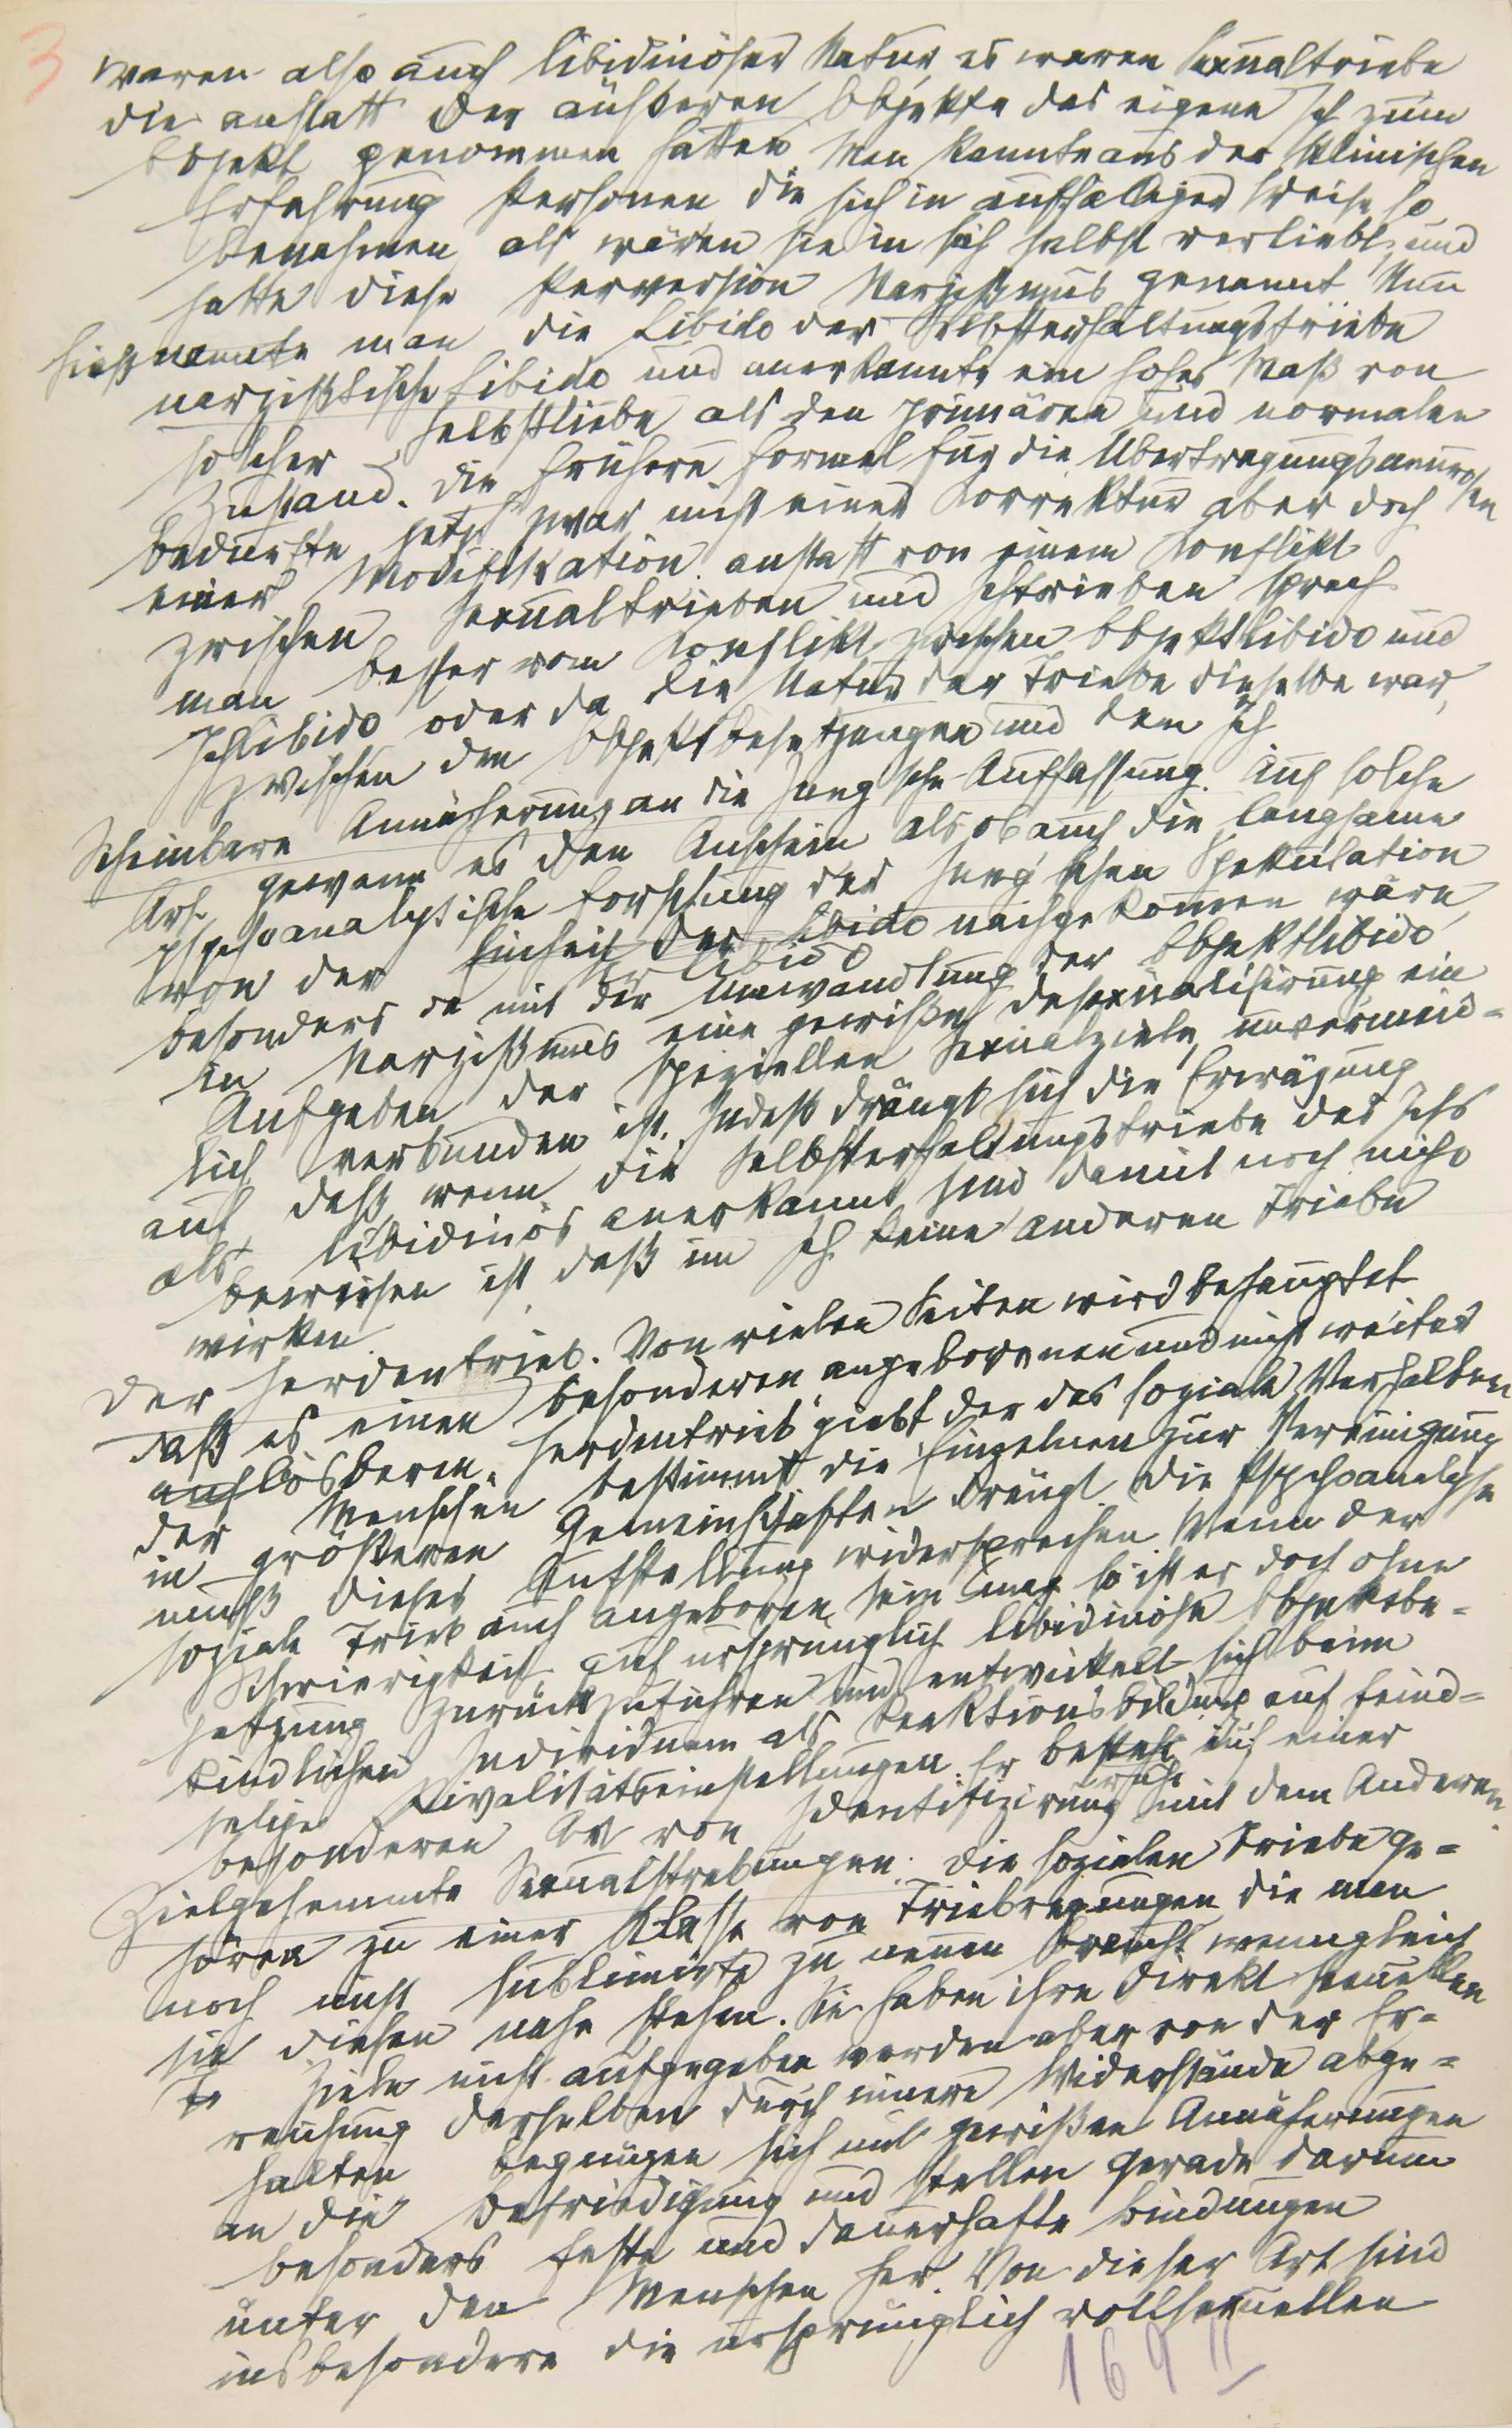 3
waren also auch libidinöser Natur, es waren Sexualtriebe
die anstatt der äußeren Objekte das eigene Ich zum
Objekt genommen hatten. Man kannte aus der klinischen
Erfahrung Personen die sich in auffälliger Weise so
benehmen als wären sie in sich selbst verliebt und
hatte diese Perversion Narzißmus genannt. Nun
hieß nannte man die Libido der Selbsterhaltungstriebe
narzißtische Libido und anerkannte ein hohes Maß von
solcher Selbstliebe als den primären und normalen
Zustand. Die frühere Formel für die Übertragungsneurosen
bedurfte jetzt zwar nicht einer Korrektur aber doch
einer Modifikation. anstatt von einem Konflikt
zwischen Sexualtrieben und Ichtrieben sprach
man besser vom Konflikt zwischen Objektlibido und
Ichlibido oder da die Natur der Triebe dieselbe war,
zwischen den Objektbesetzungen und dem Ich
Scheinbare Annäherung an die Jung'sche Auffassung. Auf solche
Art gewann es den Anschein als ob auch die langsame
psychoanalytische Forschung der Jung'schen Spekulation
von der Einheit der Libido nachgekommen wäre,
der Libido
besonders da mit der Umwandlung der Objektlibido
in Narzißmus eine gewisse Desexualisirung ein
Aufgeben der speziellen Sexualziele, unvermeid-
lich verbunden ist. Indeß drängt sich die Erwägung
auf daß, wenn die Selbsterhaltungstriebe des Ichs
als libidinös anerkannt sind damit noch nicht
bewiesen ist daß im Ich keine anderen Triebe
wirken.
Der Herdentrieb. Von vielen Seiten wird behauptet
daß es einen besonderen angeborenen und nicht weiter
auflösbaren „Herdentrieb" giebt der das soziale Verhalten
der Menschen bestimmt die Einzelnen zur Vereinigung
in größeren Gemeinschaften drängt. Die Psychoanalyse
muß dieser Aufstellung widersprechen. Wenn der
soziale Trieb auch angeboren sein mag so ist er doch ohne
Schwierigkeit auf ursprünglich libidinöse Objektbe-
setzung zurückzuführen und entwickelt sich beim
kindlichen Individuum als Reaktionsbildung auf feind-
selige Rivalitätseinstellungen. Er besteht auf einer
beruht
besonderen Art von Identifizirung mit dem Anderen.
Zielgehemmte Sexualstrebungen. Die sozialen Triebe ge-
hören zu einer Klasse von Triebregungen die man
noch nicht sublimirte zu nennen braucht wenngleich
sie diesen nahe stehen. Sie haben ihre direkt sexuellen
Ziele nicht aufgegeben werden aber von der Er-
reichung derselben durch innere Widerstände abge-
halten begnügen sich mit gewißen Annäherungen
an die Befriedigung und stellen gerade darum
besonders feste und dauerhafte Bindungen
unter den Menschen her. Von dieser Art sind
insbesondere die ursprünglich vollsexuellen
169 II